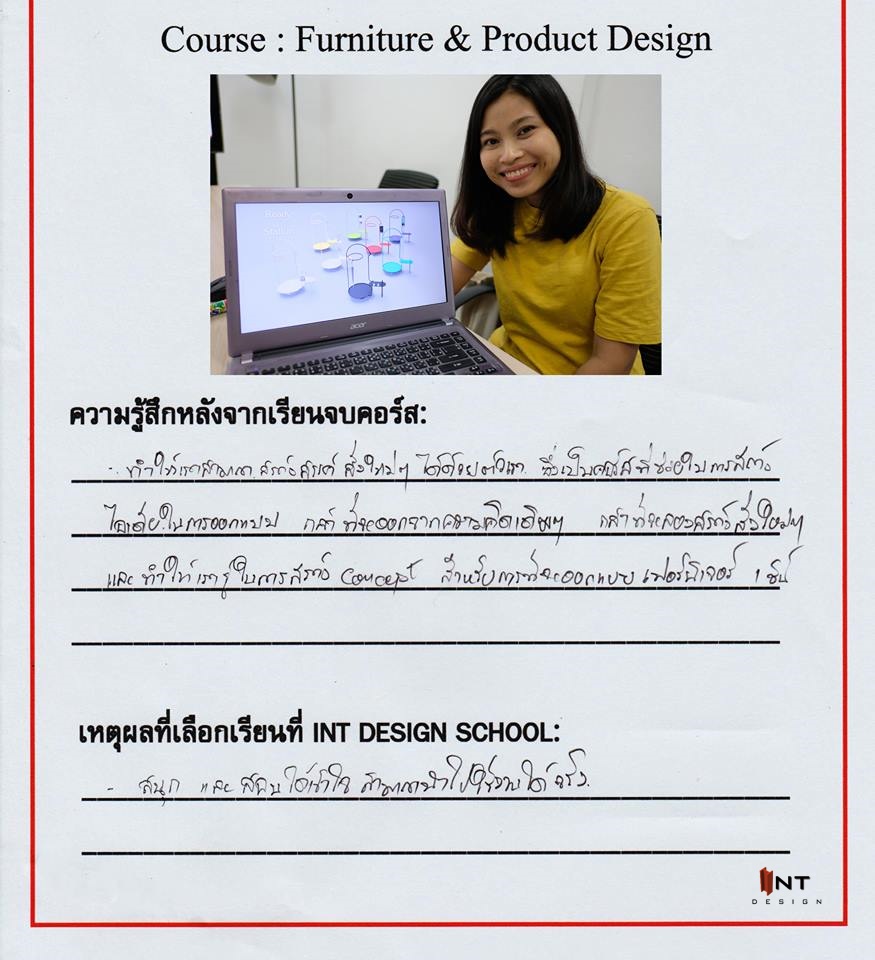 Course : Furniture & Product Design
Ready
Station
acer
ความรู้สึกหลังจากเรียนจบคอร์ส:
- ทำให้เราสามารถ สร้างสรรค์ สิ่งใหม่ๆ ได้ด้วยตัวเรา ซึ่งเป็นคอร์สที่ช่วยในการสร้าง
ไอเดียในการออกแบบ กล้าที่จะออกจากความคิดเดิมๆ กล้าที่จะลองสร้างสิ่งใหม่ๆ
และ ทำให้เรารู้ในการสร้าง Concept สำหรับการที่จะออกแบบ เฟอร์นิเจอร์ 1 ชิ้น
เหตุผลที่เลือกเรียนที่ INT DESIGN SCHOOL:
- สนุก และ สอนได้เข้าใจ สามารถนำไปใช้งานได้จริง.
INT
DESIGN